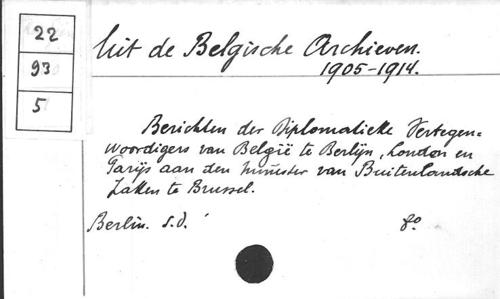 22
93
5
Uit de Belgische Archieven.
1905-1914.
Berichten der Diplomatieke Vertegen-
woordigers van België te Berlijn, Londen en
Parijs aan den Minister van Buitenlandsche
Zaken te Brussel.
Berlin. s.d. 8o